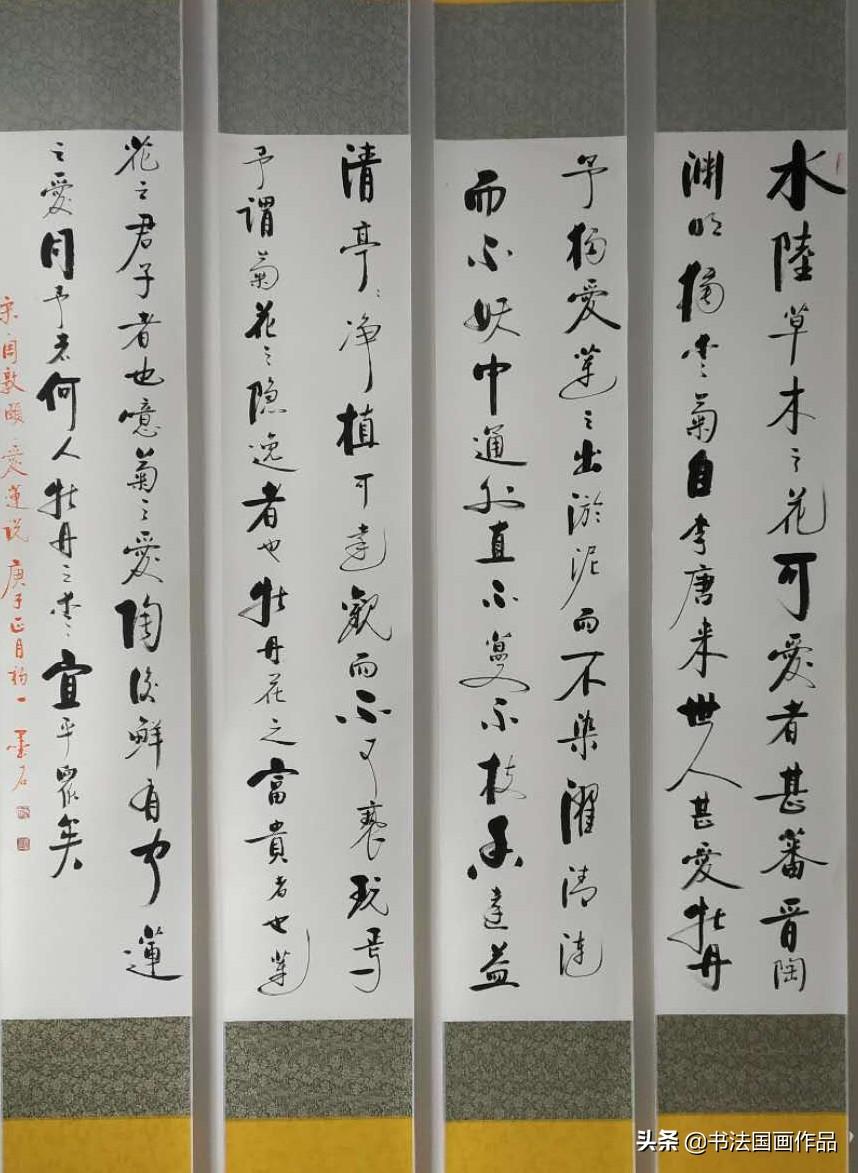 水陸草木之花可愛者甚蕃晋陶
渊明獨愛菊自李唐来世人甚愛牡丹
予獨愛蓮之出淤泥而不染濯清漣
而不妖中通外直不蔓不枝香遠益
清亭〻净植可遠觀而不可褻玩焉
予謂菊花之隐逸者也牡丹花之富貴者也蓮
花之君子者也噫菊之愛陶後鮮有聞蓮
之愛同予者何人牡丹之愛〻宜乎眾矣
宋周敦頤愛蓮说庚子正月初一墨石
头条 @书法国画作品